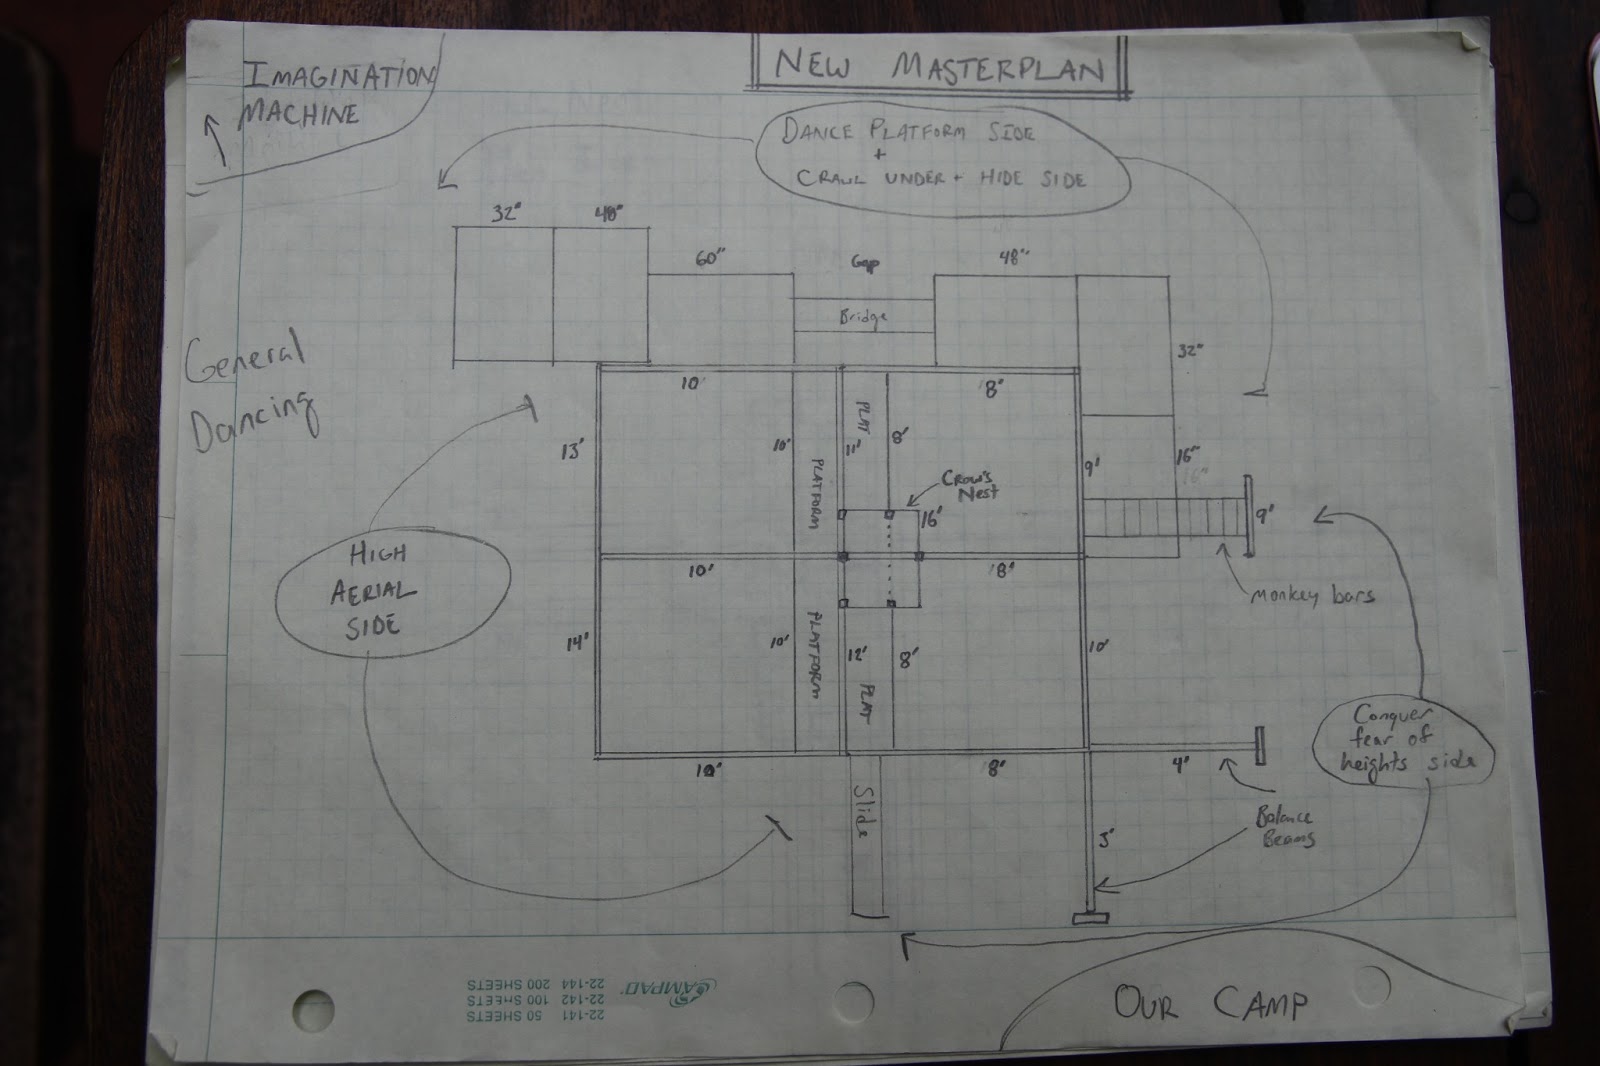 IMAGINATION
MACHINE
NEW MASTERPLAN
DANCE PLATFORM SIDE
+
CRAWL UNDER + HIDE SIDE
32"
48"
60"
Gap
48"
Bridge
32"
General
Dancing
10'
8'
13'
10'
PLATFORM
11'
PLAT
8'
9'
16"
16"
CROW'S
NEST
16'
9'
HIGH
AERIAL
SIDE
10'
8'
monkey bars
14'
10'
PLATFORM
12'
PLAT
8'
10'
Conquer
fear of
heights side
10'
8'
4'
Slide
Balance
Beams
OUR CAMP
CAMPAD
22-141 50 SHEETS
22-142 100 SHEETS
22-144 200 SHEETS